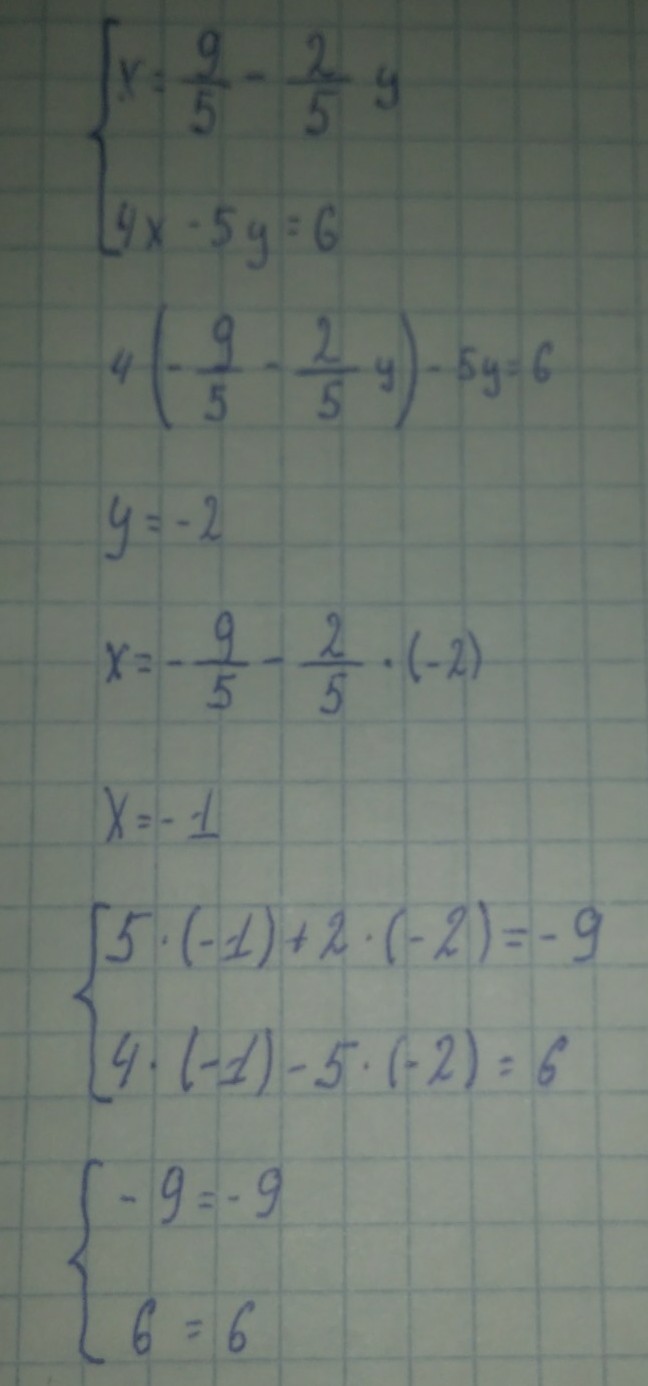 x = 9/5 - 2/5 y
4x - 5y = 6
4(-9/5 - 2/5 y) - 5y = 6
y = -2
x = -9/5 - 2/5 · (-2)
x = -1
5 · (-1) + 2 · (-2) = -9
4 · (-1) - 5 · (-2) = 6
-9 = -9
6 = 6